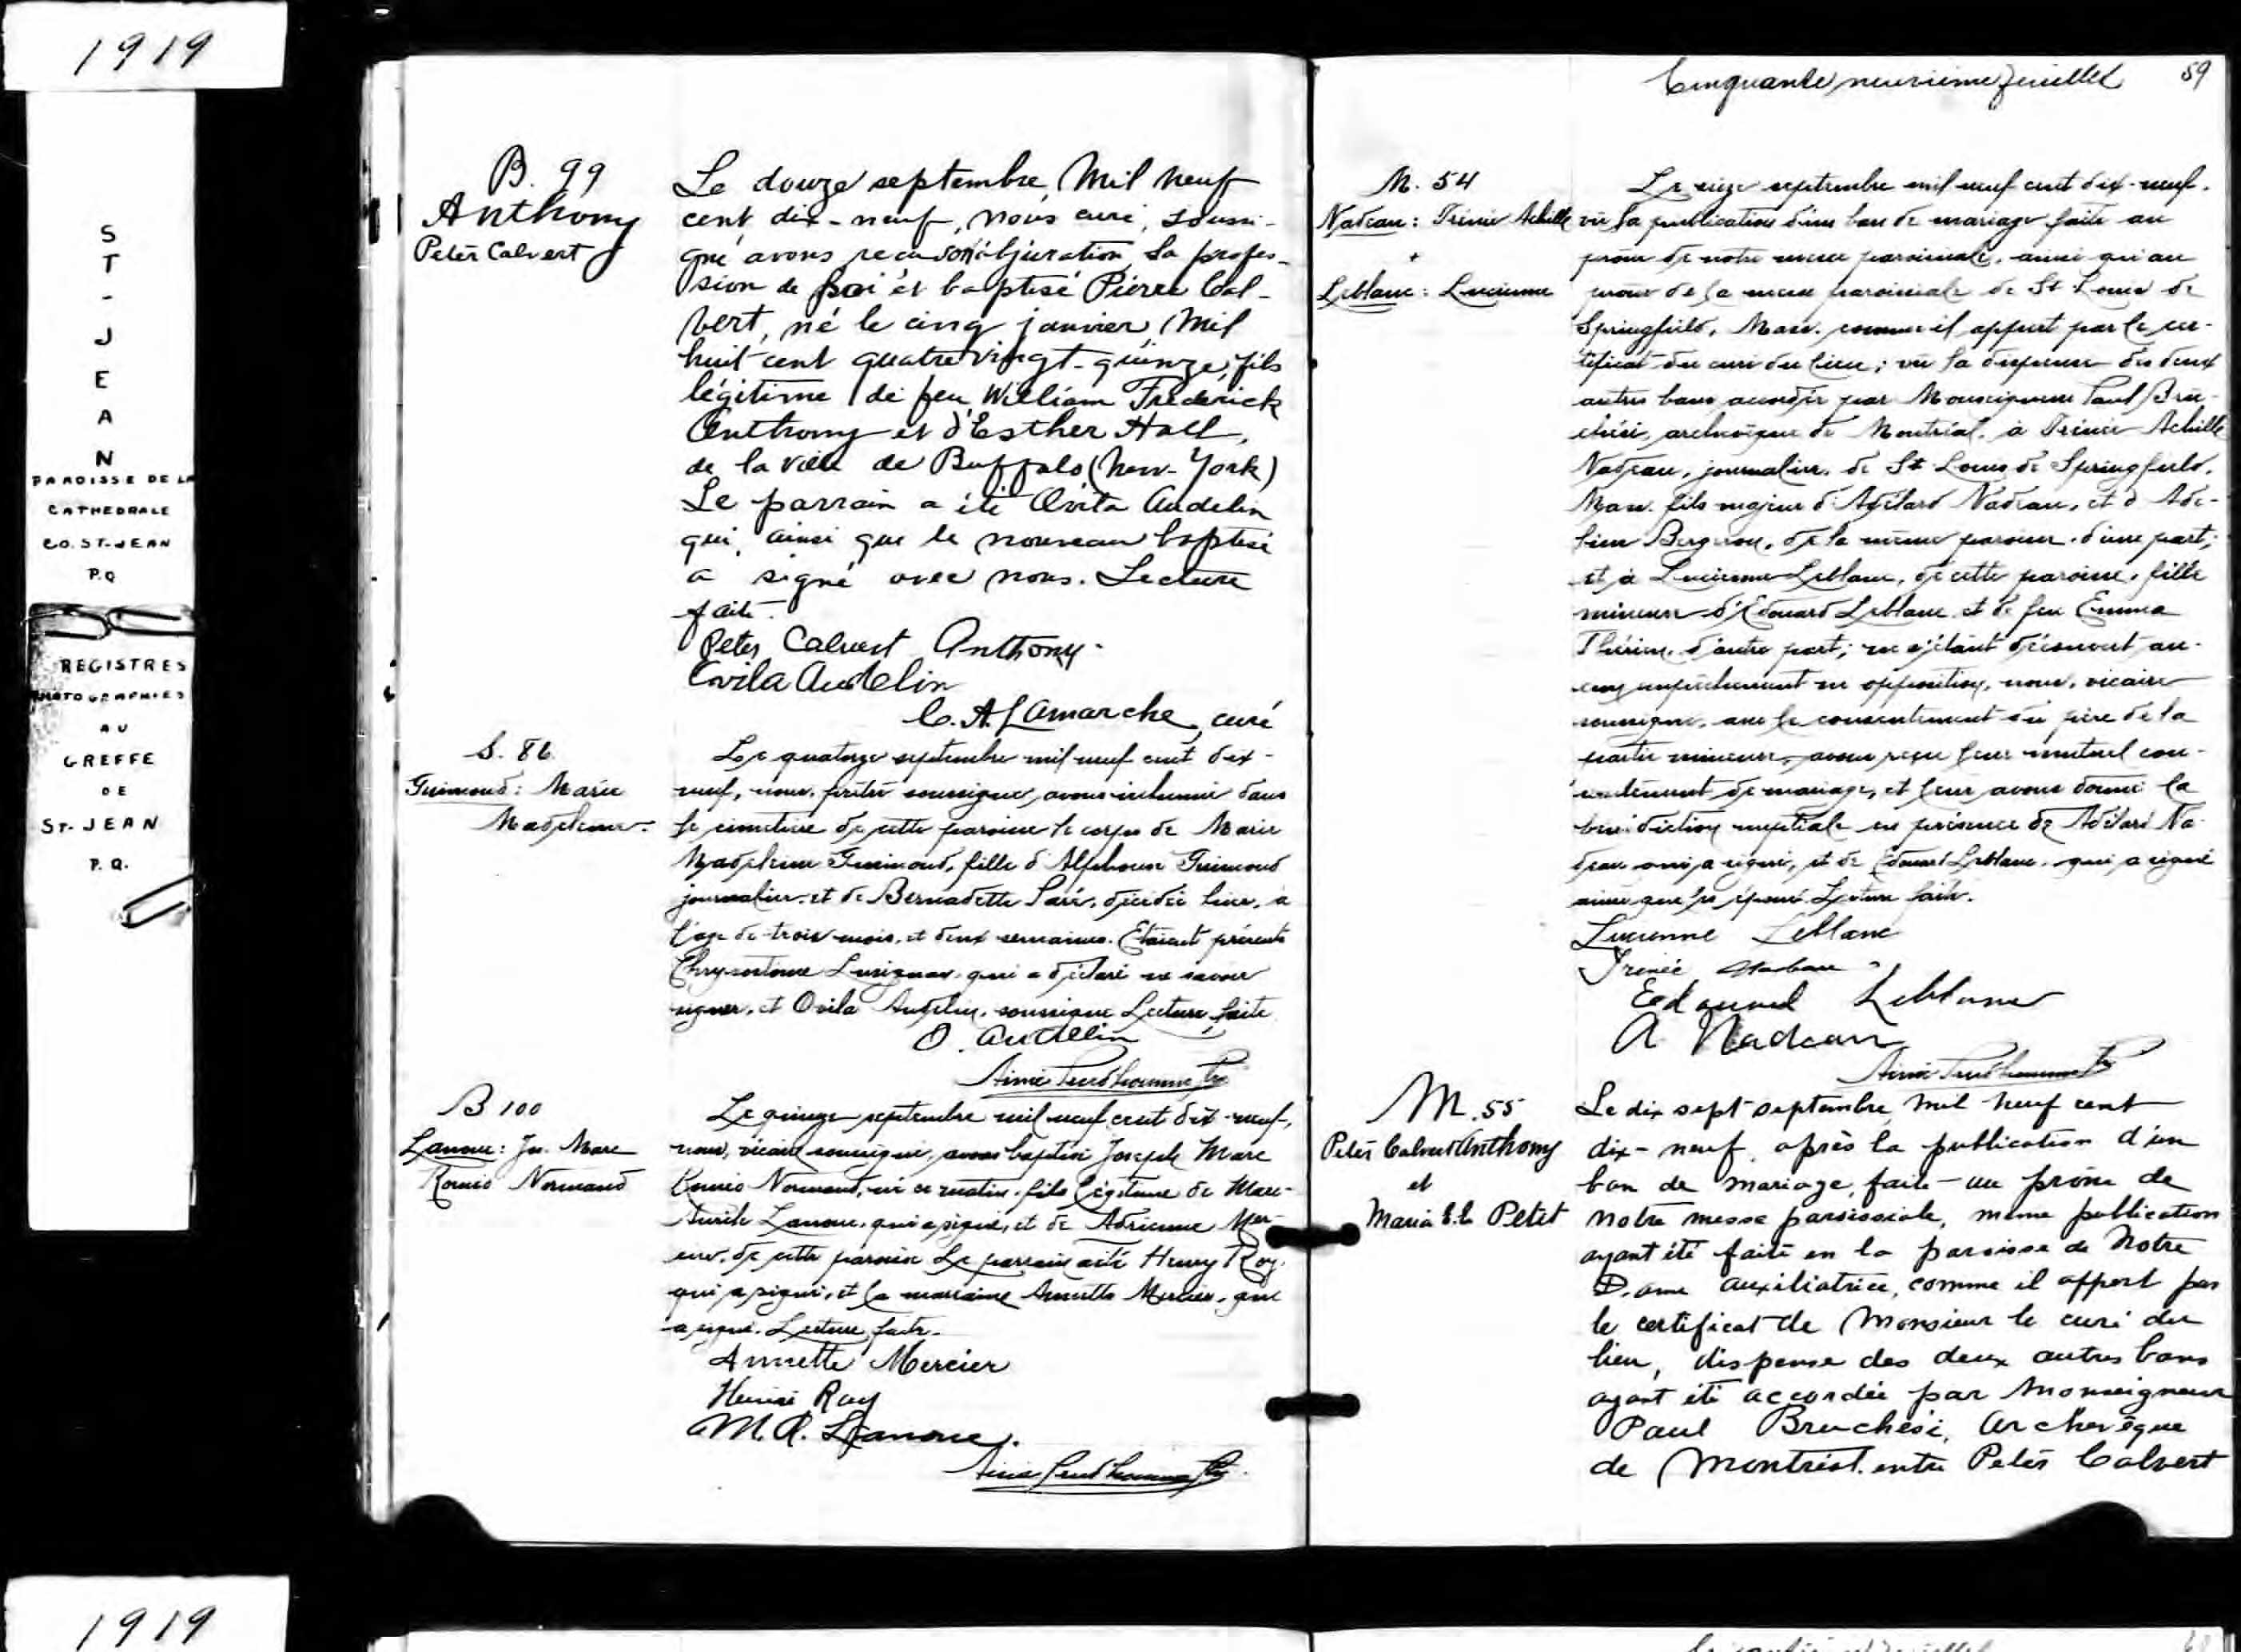 1919
S
T
-
J
E
A
N
PAROISSE DE LA
CATHEDRALE
CO. ST-JEAN
P.Q
REGISTRES
PHOTOGRAPHIES
AU
GREFFE
DE
ST-JEAN
P.Q.
1919
B. 99
Anthony
Peter Calvert
Le douze septembre Mil neuf
cent dix-neuf, nous curé, soussi-
gné avons reçu son abjuration, sa profes-
sion de foi et baptisé Pierre Cal-
vert, né le cinq janvier, Mil
huit cent quatre vingt-quinze, fils
légitime de feu William Frederick
Anthony et d'Esther Hall,
de la ville de Buffalo (New-York)
Le parrain a été Ovila Audelin
qui, ainsi que le nouveau baptisé
a signé avec nous. Lecture
faite.
Peter Calvert Anthony.
Ovila Audelin
C. A. Lamarche, curé
S. 86
Guimond: Marie
Madeleine.
Le quatorze septembre mil neuf cent dix-
neuf, nous, prêtre soussigné, avons inhumé dans
le cimetière de cette paroisse le corps de Marie
Madeleine Guimond, fille d'Alphonse Guimond
journalier, et de Bernadette Paré, décédée hier, à
l'age de trois mois, et deux semaines. Etaient présents
Chrysostome Lusignan, qui a déclaré ne savoir
signer, et Ovila Audelin, soussigné Lecture faite
O. Audelin
Aimé Prud'homme Ptre
B 100
Lanoue: Jos. Marc
Roméo Normand
Le quinze septembre mil neuf cent dix-neuf,
nous, vicaire soussigné, avons baptisé Joseph Marc
Roméo Normand, né ce matin, fils légitime de Marc-
Aurèle Lanoue, qui a signé, et de Adrienne Mer-
cier, de cette paroisse Le parrain a été Henry Roy,
qui a signé, et la marraine Annette Mercier, qui
a signé. Lecture faite.
Annette Mercier
Henri Roy
M. A. Lanoue.
Aimé Prud'homme Ptre.
Cinquante neuvième feuillet 59
M. 54
Nadeau: Irénée Achille
+
Leblanc: Lucienne
Le seize septembre mil neuf cent dix-neuf,
vu la publication d'un ban de mariage faite au
prône de notre messe paroissiale, ainsi qu'au
prône de la messe paroissiale de St Louis de
Springfield, Mass. comme il appert par le cer-
tificat du curé du lieu; vu la dispense des deux
autres bans accordée par Monseigneur Paul Bru-
chési, archevêque de Montréal, à Irénée Achille
Nadeau, journalier, de St. Louis de Springfield,
Mass. fils majeur d'Adélard Nadeau, et d'Adé-
line Bergeron, de la même paroisse, d'une part;
et à Lucienne Leblanc, de cette paroisse, fille
mineure d'Edouard Leblanc et de feu Emma
Thérien, d'autre part; ne s'étant découvert au-
cun empêchement ni opposition, nous, vicaire
soussigné, avec le consentement du père de la
partie mineure, avons reçu leur mutuel con-
sentement de mariage, et leur avons donné la
bénédiction nuptiale en présence de Adélard Na-
deau qui a signé, et de Edouard Leblanc, qui a signé
ainsi que les époux. Lecture faite.
Lucienne Leblanc
Irénée Nadeau
Edouard Leblanc
A. Nadeau
Aimé Prud'homme Ptre
M. 55
Peter Calvert Anthony
et
Maria E.L. Petit
Le dix sept septembre, mil neuf cent
dix-neuf, après la publication d'un
ban de mariage, faite au prône de
notre messe paroissiale, même publication
ayant été faite en la paroisse de Notre
Dame auxiliatrice, comme il appert par
le certificat de Monsieur le curé du
lieu, dispense des deux autres bans
ayant été accordée par Monseigneur
Paul Bruchési, Archevêque
de Montréal, entre Peter Calvert